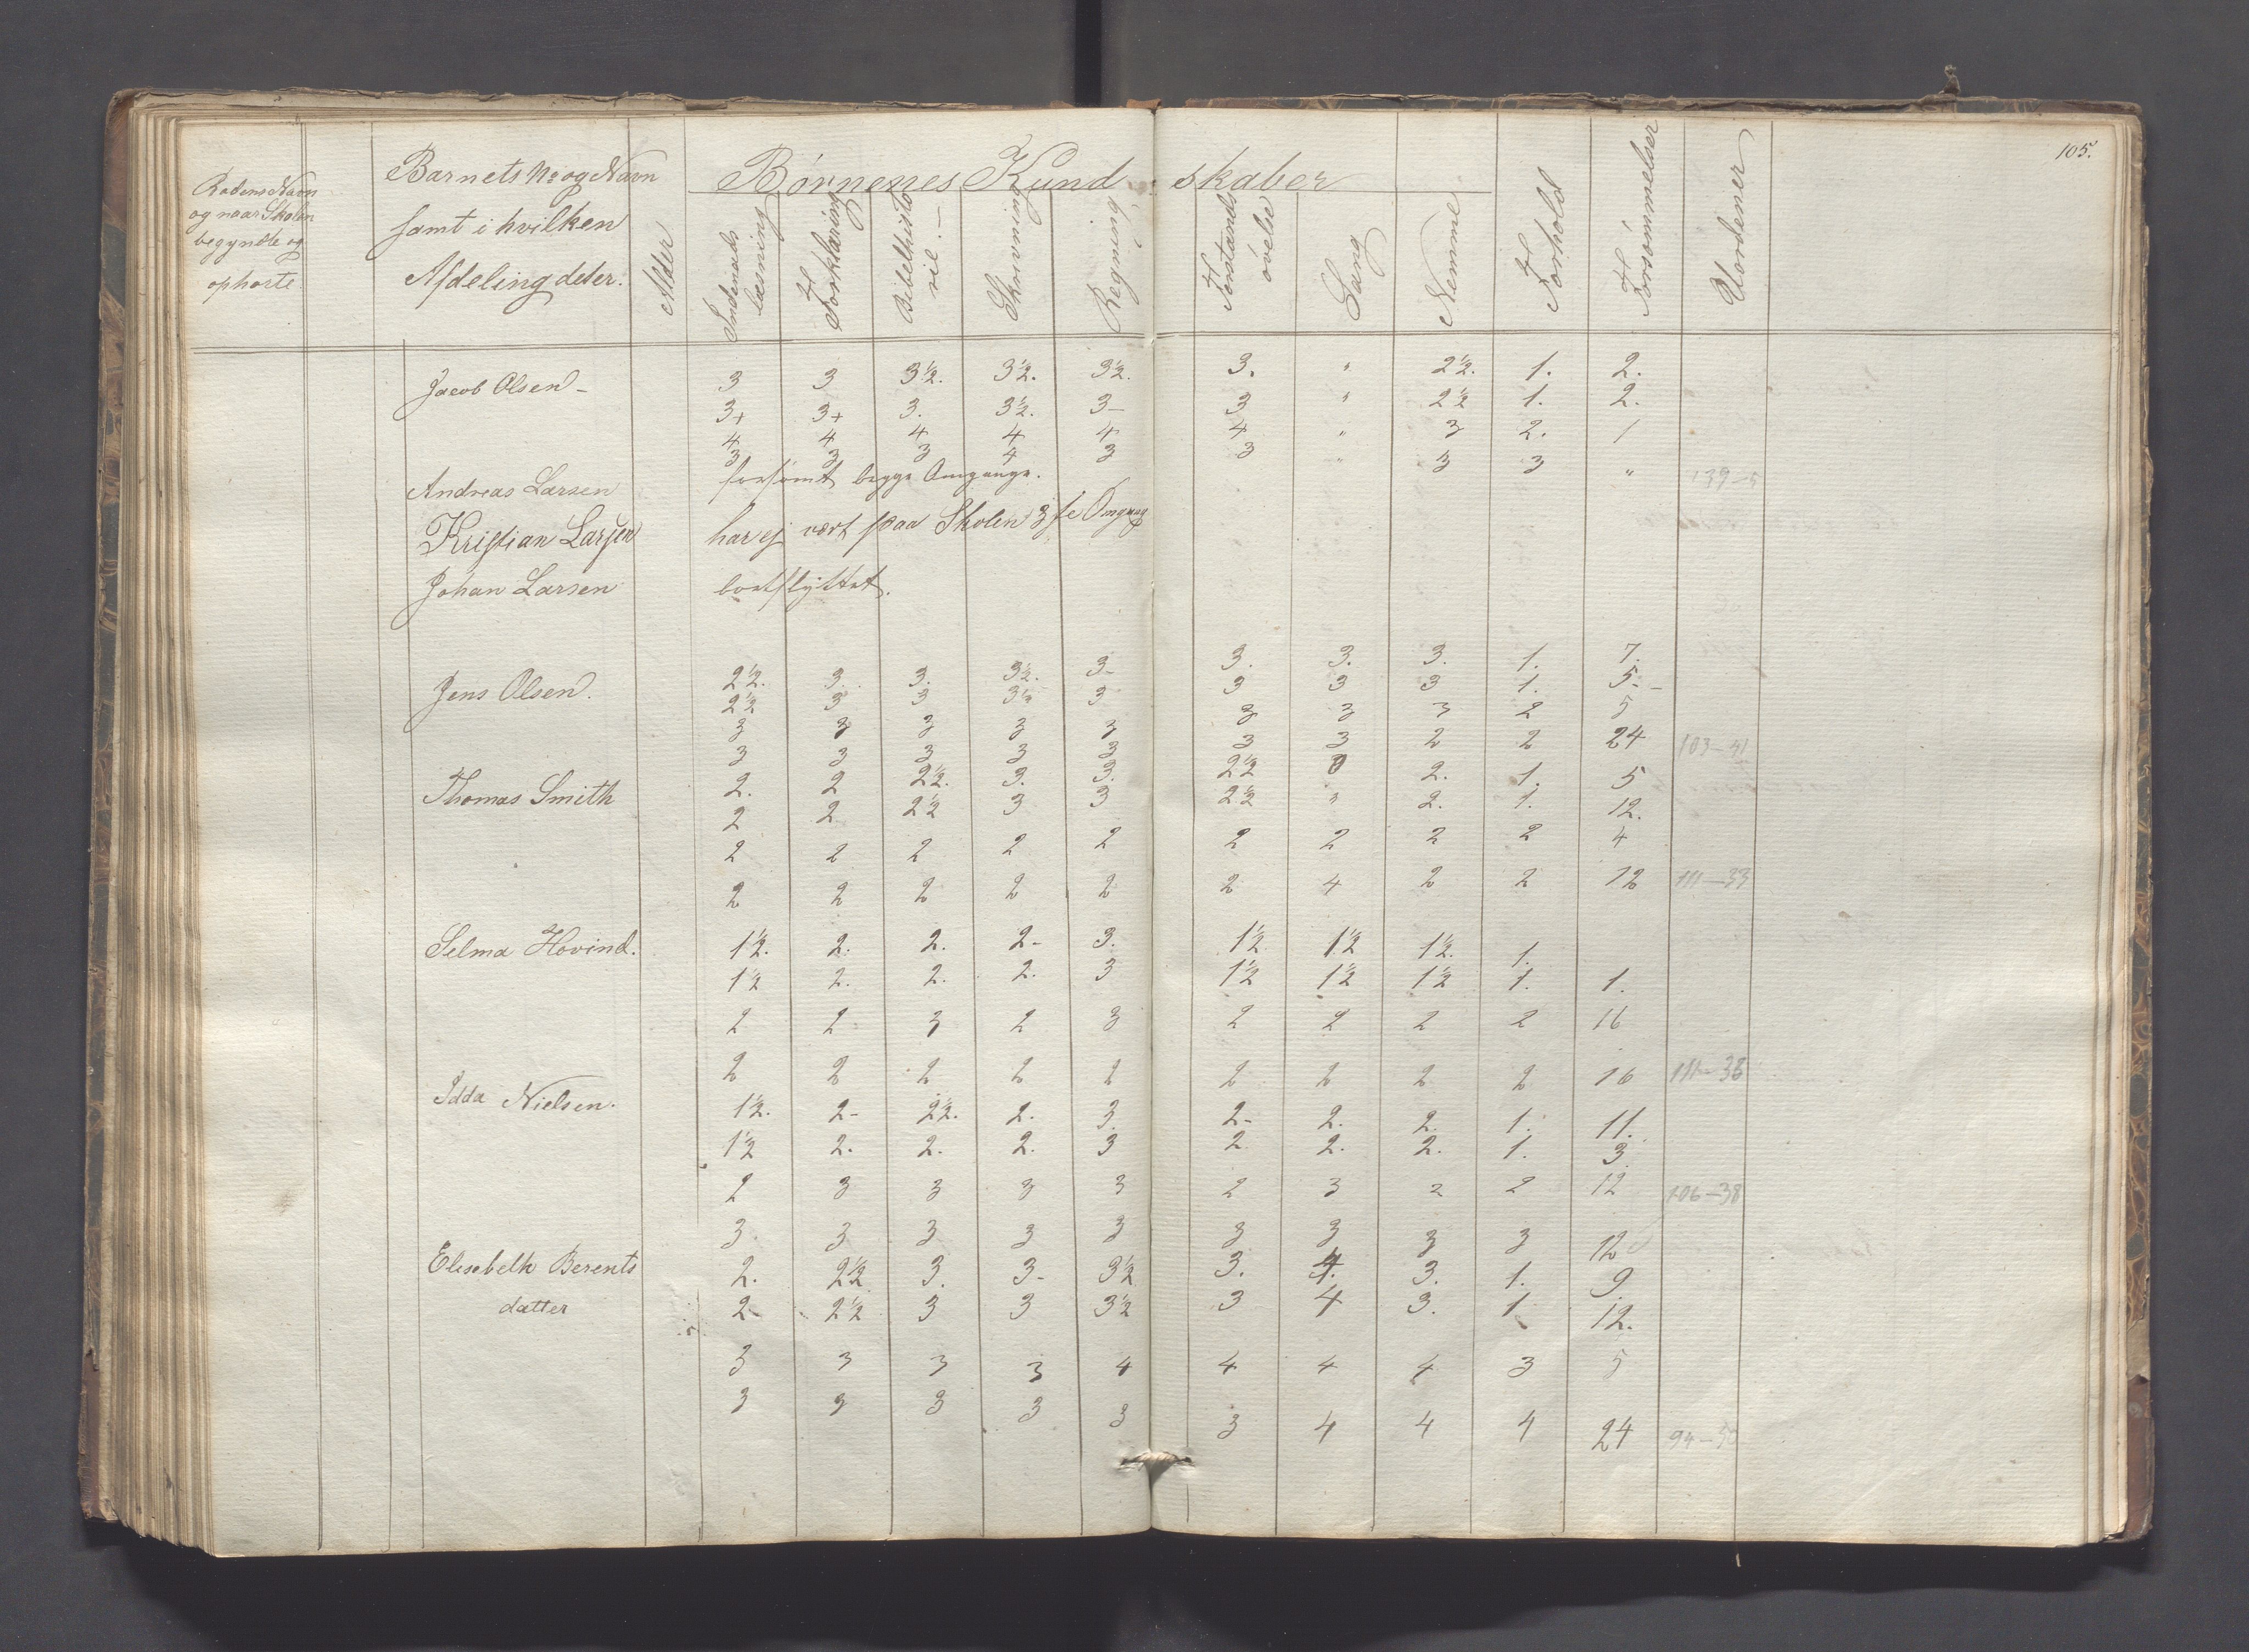 105.
Rodens Navn
og naar Skolen
begyndte og
ophørte.
Barnets No og Navn
samt i hvilken
Afdeling det er.
Alder
Børnenes Kundskaber
Indenads
læsning
Forklaring
Bibelhisto
rie.
Skrivning
Regning
Forstands
øvelse
Sang
Nemme
Forhold
Forsømmelser
Uordener
Jacob Olsen - 3 3 3½. 3½. 3½. 3. " 2½. 1. 2.
3+ 3+ 3. 3½. 3- 3 " 2½ 1. 2.
4 4 4 4 4 4 " 3 2. 1
3 3 3 4 3 3 " 3 3 "
Andreas Larsen forsømt begge Omgange.
Kristian Larsen har ej vært paa Skolen 3die Omgang
Johan Larsen bortflyttet.
Jens Olsen. 2½. 3. 3. 3½. 3- 3. 3. 3. 1. 7.
2½ 3 3 3½ 3 3 3 3 1. 5.-
3 3 3 3 3 3 3 3 2 5
3 3 3 3 3 3 3 2 2 24 103-41
Thomas Smith 2. 2 2½. 3. 3. 2½ 2. 1. 5
2 2 2½ 3 3 2½ " 2. 1. 12.
2 2 2 2 2 2 2 2 2 4
2 2 2 2 2 2 4 2 2 12 111-33
Selma Hovind. 1½. 2. 2. 2- 3. 1½ 1½ 1½. 1.
1½ 2. 2. 2. 3 1½ 1½ 1½ 1. 1.
2 2 3 2 3 2 2 2 2 16
2 2 2 2 2 2 2 2 2 16 111-38
Idda Nielsen. 1½. 2- 2½. 2. 3. 2- 2. 2. 1. 11.
1½ 2. 2. 2. 3 2 2. 2. 1. 3.
2 3 3 3 3 2 3 2 2 12 106-38
3 3 3 3 3 3 3 3 3 12
Elesabelh Berents 2. 2½ 3. 3- 3½ 3. 4. 3. 1. 9.
datter 2 2½ 3 3 3½ 3 4 3. 1. 12.
3 3 3 3 4 4 4 4 3 5
3 3 3 3 3 3 4 4 4 24